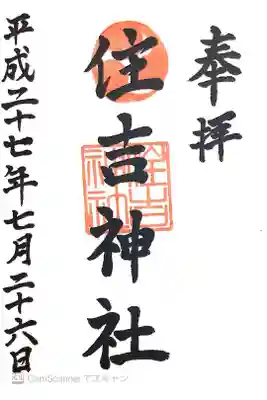 奉拝
住吉神社
平成二十七年七月二十六日
CamScanner でスキャン